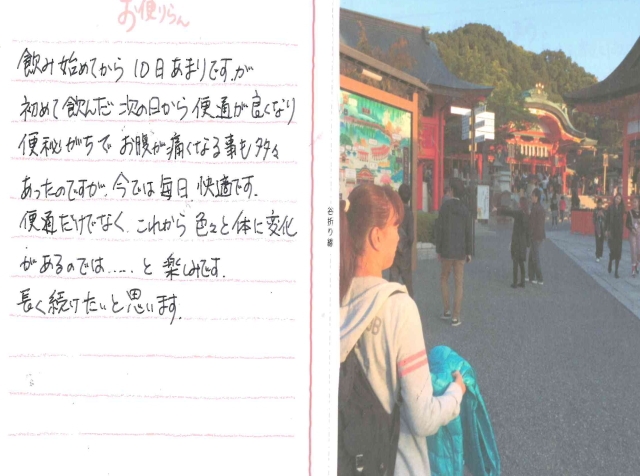 お便りらん
飲み始めてから 10日あまりですが
初めて飲んだ次の日から便通が良くなり
便秘がちでお腹が痛くなる事も多々
あったのですが、今では毎日快適です。
便通だけでなく、これから色々と体に変化
があるのでは.....と楽しみです。
長く続けたいと思います。
谷折り線